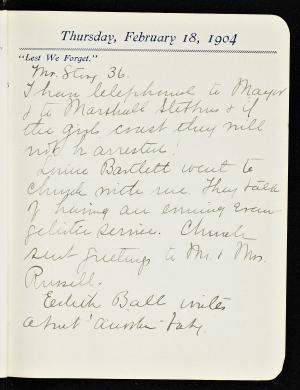 Thursday, February 18, 1904
"Lest We Forget."
Mr. Story, 36.
I have telephoned to Mayor
& to Marshall & if
the girls coast they will
not b arrested!
Bartlett went to
church with me. They talk
of having an evening evan-
gelistic service. Church
sent greetings to Mr. & Mrs.
Russell.
Edith Ball writes
about